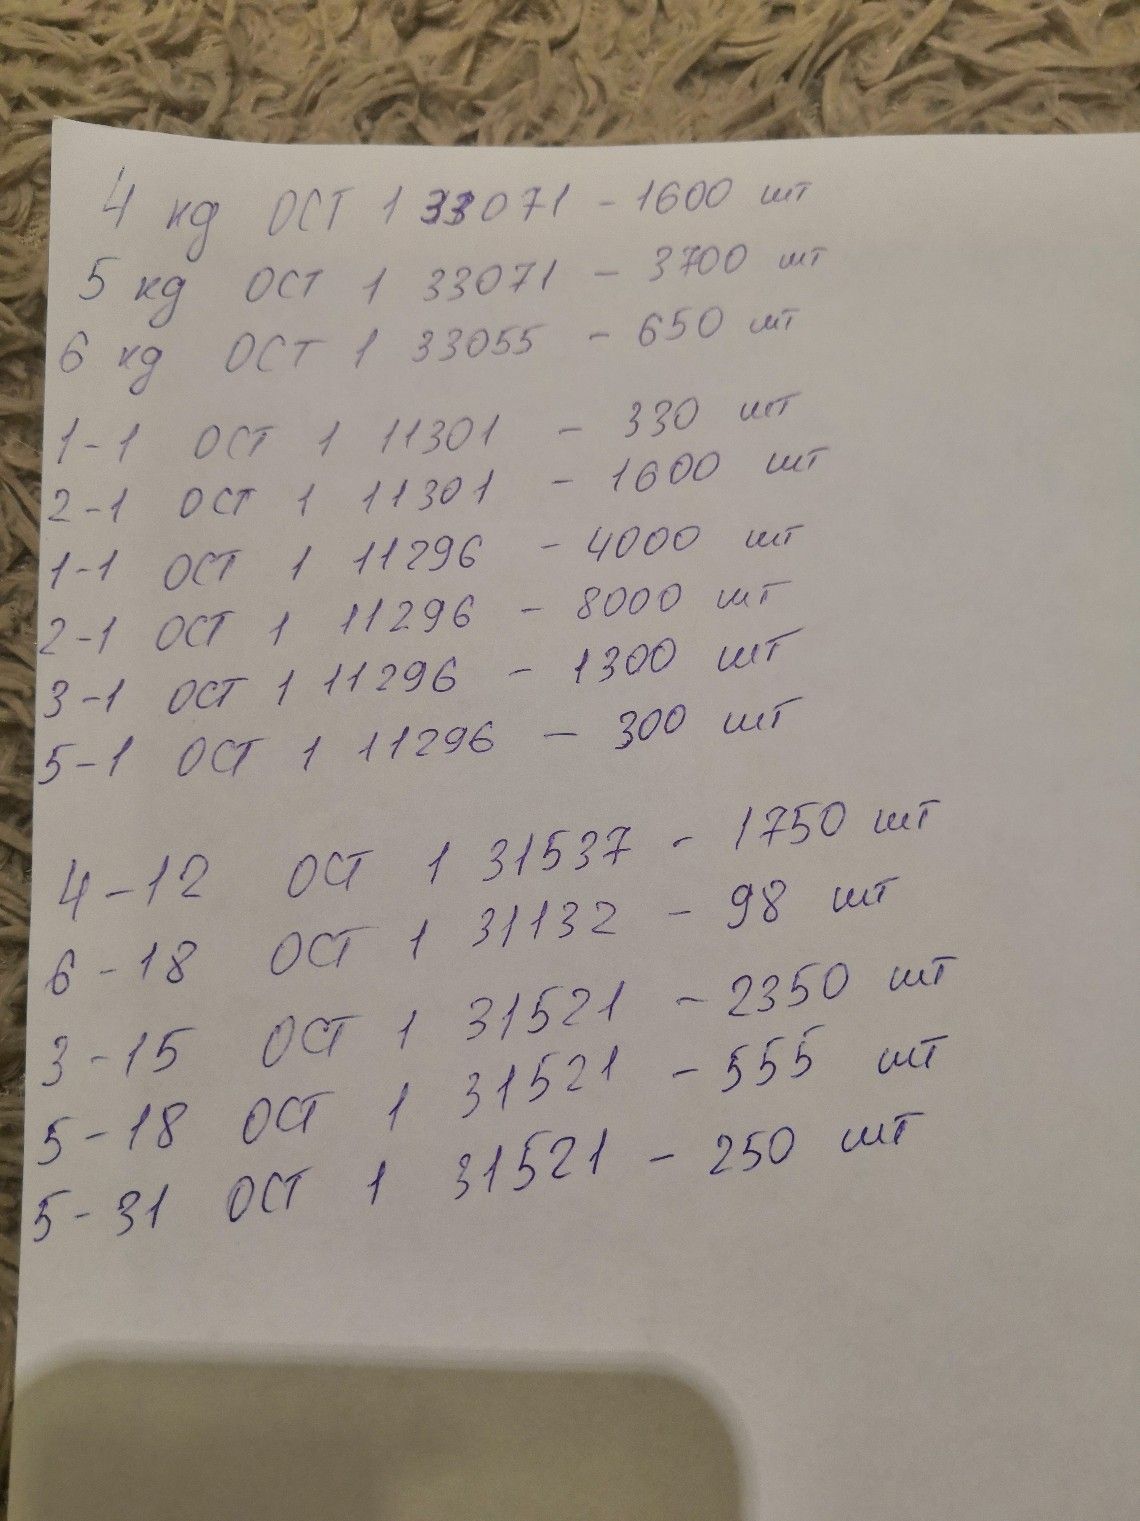 4 кд ОСТ 1 33071 - 1600 шт
5 кд ОСТ 1 33071 - 3700 шт
6 кд ОСТ 1 33055 - 650 шт
1-1 ОСТ 1 11301 - 330 шт
2-1 ОСТ 1 11301 - 1600 шт
1-1 ОСТ 1 11296 - 4000 шт
2-1 ОСТ 1 11296 - 8000 шт
3-1 ОСТ 1 11296 - 1300 шт
5-1 ОСТ 1 11296 - 300 шт
4-12 ОСТ 1 31537 - 1750 шт
6-18 ОСТ 1 31132 - 98 шт
3-15 ОСТ 1 31521 - 2350 шт
5-18 ОСТ 1 31521 - 555 шт
5-31 ОСТ 1 31521 - 250 шт